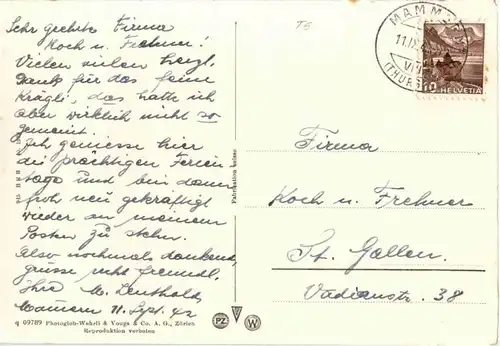 Sehr geehrte Firma
Koch u. Frehner!
Vielen vielen herzl.
Dank für das feine
Krägli, das hatte ich
aber wirklich nicht so
gemeint.
Ich geniesse hier
die prächtigen Ferien
tage und bin dann
froh neu gekräftigt
wieder an meinem
Posten zu stehn.
Also nochmals dankend,
grüsse recht freundl.
Ihre M. Leuthold
Mammern 11. Sept. 42
q 09789 Photoglob-Wehrli & Vouga & Co. A. G., Zürich
Reproduktion verboten
Fabrikation suisse
PZ
W
TG
MAMM
11.IX.
(THUR
10 HELVETIA
Firma
Koch u. Frehner
St. Gallen.
Vadianstr. 38